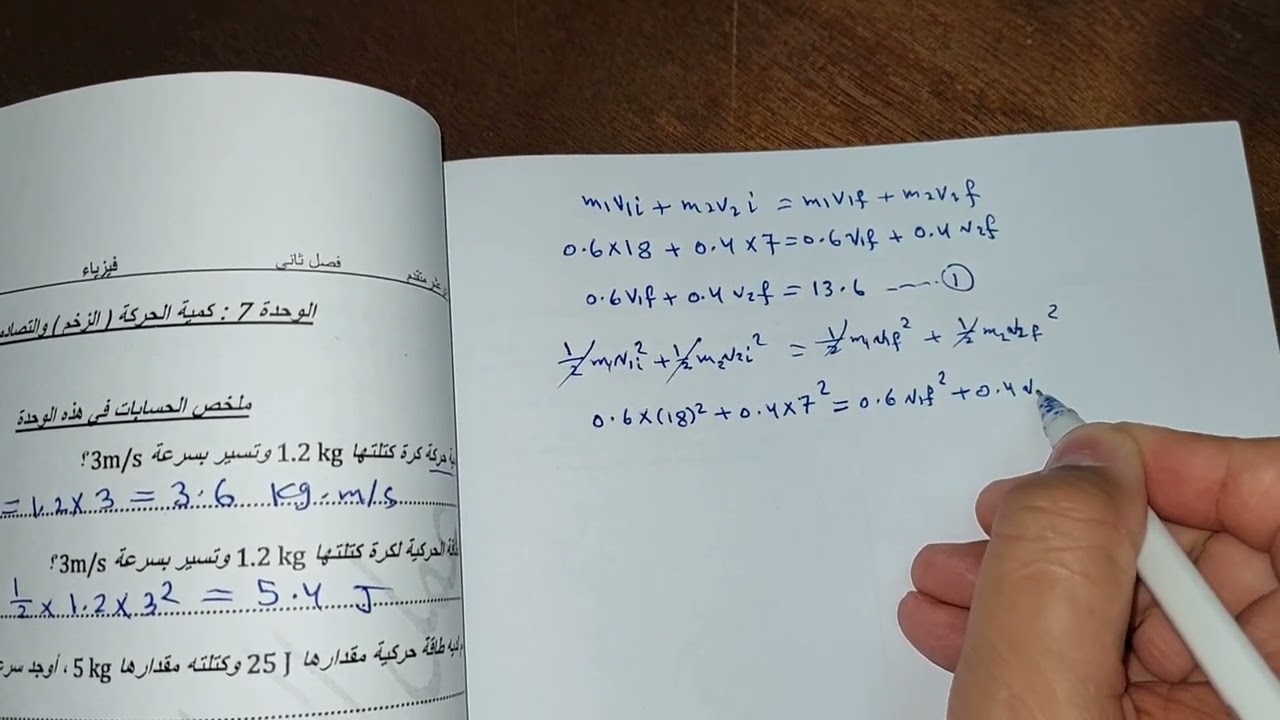 فيزياء
فصل ثاني
متقدم
الوحدة 7 : كمية الحركة ( الزخم )
ملخص الحسابات في هذه الوحدة
حركة كرة كتلتها 1.2 kg وتسير بسرعة 3m/s؟
= 1.2 × 3 = 3.6 kg.m/s
الحركية لكرة كتلتها 1.2 kg وتسير بسرعة 3m/s؟
1/2 × 1.2 × 3² = 5.4 J
طاقة حركية مقدارها 25 J وكتلته مقدارها 5 kg ، أوجد
m1v1i + m2v2i = m1v1f + m2v2f
0.6×18 + 0.4×7 = 0.6v1f + 0.4v2f
0.6v1f + 0.4v2f = 13.6 ---- ①
1/2 m1v1i² + 1/2 m2v2i² = 1/2 m1v1f² + 1/2 m2v2f²
0.6×(18)² + 0.4×7² = 0.6v1f² + 0.4v